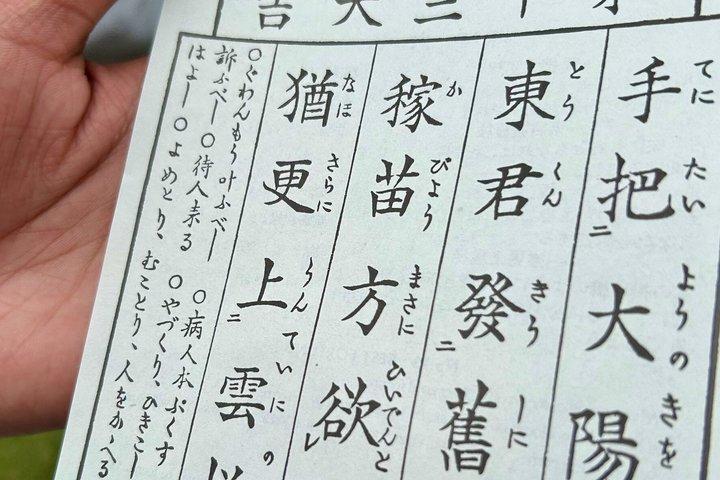 十三大吉
てに たい ようのきを
手把二大陽
とう くん きう しに
東君發二舊
か びよう まさに ひいでんと
稼苗方欲レ
なほ さらに うんていに の
猶更上二雲
○ぐわんもう叶ふべし ○病人本ぷくす
訴ふべし ○待人来る ○やづくり、ひきこし
はよし ○よめとり、むことり、人をかゝへる